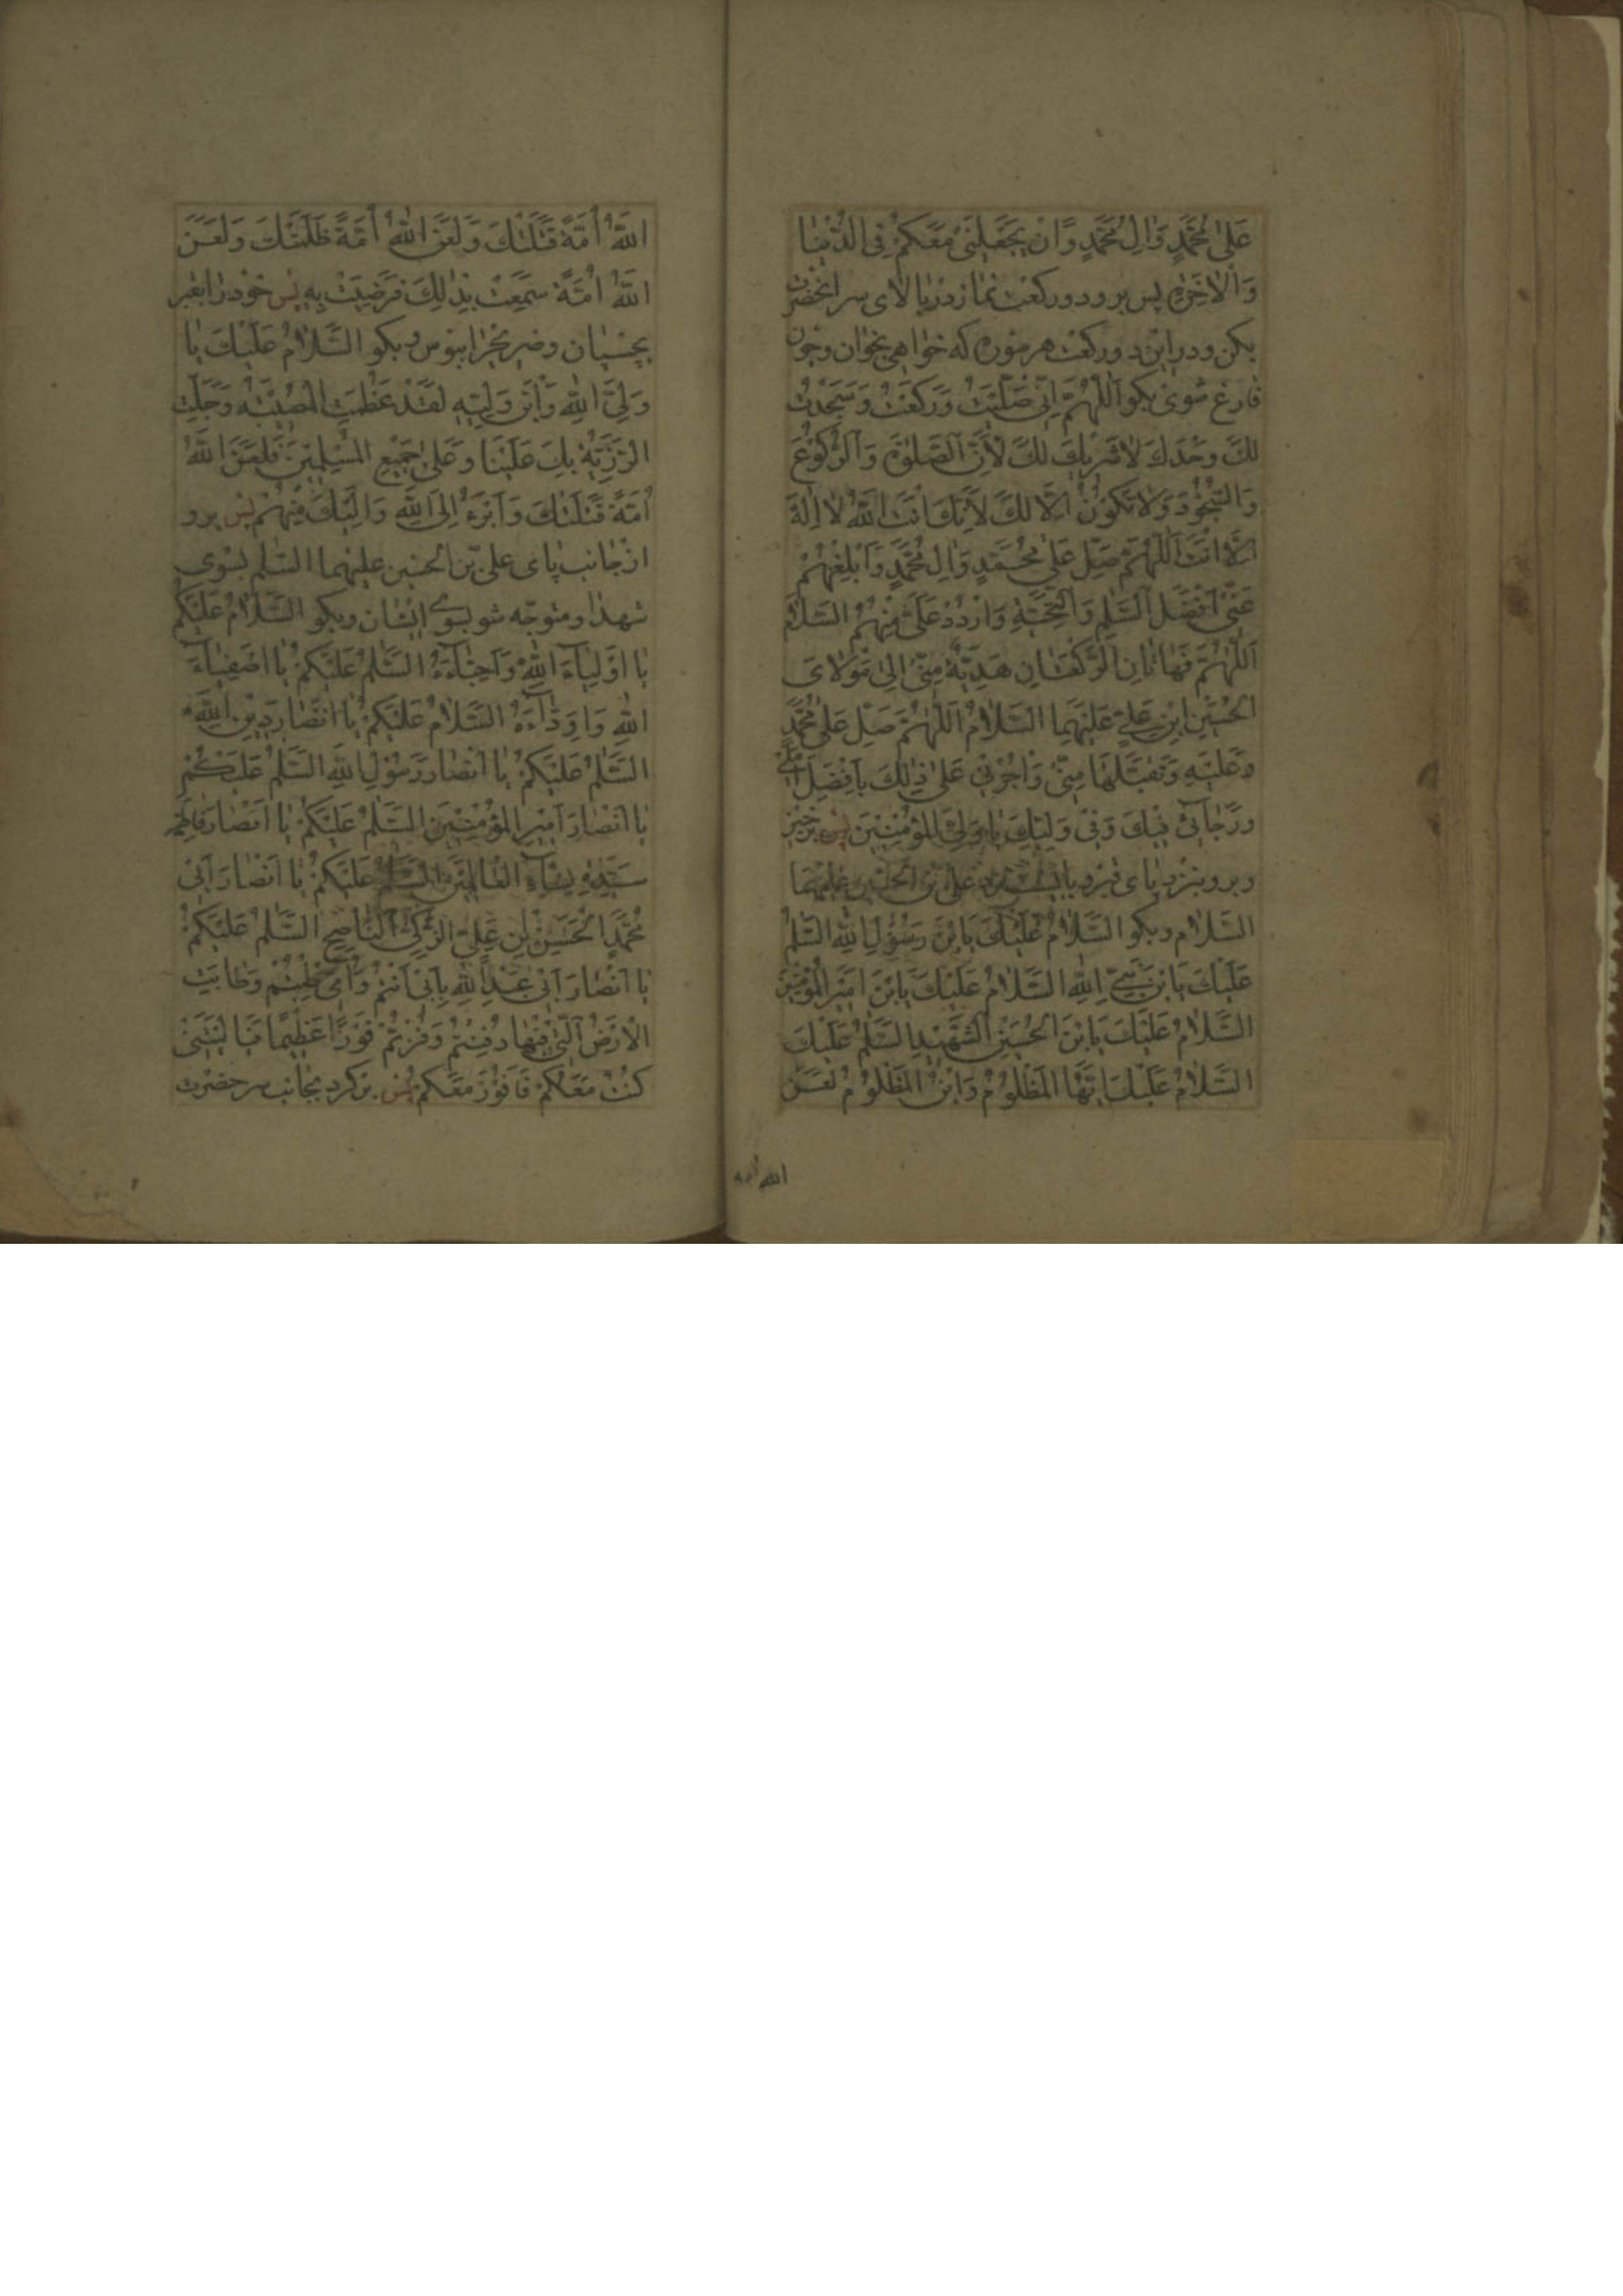 عَلیٰ مُحَمَّدٍ وَاٰلِ مُحَمَّدٍ وَاَنْ يَجْعَلَنِیْ مَعَكُمْ فِی الدُّنْيٰا
وَالْاٰخِرَةِ پس برو دو رکعت نماز در بالای سر انحضرت
بکن و در این دو رکعت هر سوره که خواهی بخوان و چون
فارغ شوی بکو اَللّٰهُمَّ اِنّی صَلَّيْتُ وَرَكَعْتُ وَسَجَدْتُ
لَكَ وَحْدَكَ لاٰ شَرِيْكَ لَكَ لِاَنَّ الصَّلوٰةَ وَالرُّكُوْعَ
وَالسُّجُوْدَ وَلاٰ تَكُوْنُ اِلّاٰ لَكَ لِاَنَّكَ اَنْتَ اللّٰهُ لاٰ اِلٰهَ
اِلّاٰ اَنْتَ اَللّٰهُمَّ صَلِّ عَلیٰ مُحَمَّدٍ وَاٰلِ مُحَمَّدٍ وَاَبْلِغْهُمْ
عَنّی اَفْضَلَ السَّلٰمِ وَالتَّحِيَّةِ وَارْدُدْ عَلَیَّ مِنْهُمُ السَّلاٰمَ
اَللّٰهُمَّ فَهٰاتٰانِ الرَّكْعَتٰانِ هَدِيَّةٌ مِنّی اِلیٰ مَوْلاٰیَ
الْحُسَيْنِ ابْنِ عَلِیٍّ عَلَيْهِمَا السَّلاٰمُ اَللّٰهُمَّ صَلِّ عَلیٰ مُحَمَّدٍ
وَعَلَيْهِ وَتَقَبَّلْهُمٰا مِنّی وَاجْزِنی عَلیٰ ذٰلِكَ بِاَفْضَلِ اَمَلی
وَرَجٰائی فيْكَ وَفی وَلِيِّكَ يٰا وَلِیَّ الْمُؤْمِنيْنَ پس برخیز
و برو بنزد پای قبر و بایست نزد علی بن الحسین علیهما
السّلام و بکو السَّلاٰمُ عَلَيْكَ يَابْنَ رَسُوْلِ اللّٰهِ السَّلٰمُ
عَلَيْكَ يَابْنَ نَبِیِّ اللّٰهِ السَّلاٰمُ عَلَيْكَ يَابْنَ اَميْرِ الْمُؤْمِنيْنَ
السَّلاٰمُ عَلَيْكَ يَابْنَ الْحُسَيْنِ الشَّهيْدِ السَّلٰمُ عَلَيْكَ
السَّلاٰمُ عَلَيْكَ اَيُّهَا الْمَظْلُوْمُ وَابْنُ الْمَظْلُوْمِ لَعَنَ
الله امة
اللّٰهُ اُمَّةً قَتَلَتْكَ وَلَعَنَ اللّٰهُ اُمَّةً ظَلَمَتْكَ وَلَعَنَ
اللّٰهُ اُمَّةً سَمِعَتْ بِذٰلِكَ فَرَضِيَتْ بِهِ پس خود را بقبر
بچسبان و ضریح را ببوس و بکو السَّلاٰمُ عَلَيْكَ يٰا
وَلِیَّ اللّٰهِ وَابْنَ وَلِيِّهِ لَقَدْ عَظُمَتِ الْمُصيْبَةُ وَجَلَّتِ
الرَّزِيَّةُ بِكَ عَلَيْنٰا وَعَلیٰ جَميْعِ الْمُسْلِميْنَ فَلَعَنَ اللّٰهُ
اُمَّةً قَتَلَتْكَ وَاَبْرَءُ اِلَی اللّٰهِ وَاِلَيْكَ مِنْهُمْ پس برو
از جانب پای علی بن الحسین علیهما السّلم بسوی
شهدا و متوجّه شو بسوی ایشان و بکو السَّلاٰمُ عَلَيْكُمْ
يٰا اَوْلِيٰآءَ اللّٰهِ وَاَحِبّٰآءَهُ السَّلٰمُ عَلَيْكُمْ يٰا اَصْفِيٰآءَ
اللّٰهِ وَاَوِدّٰآءَهُ السَّلاٰمُ عَلَيْكُمْ يٰا اَنْصٰارَ ديْنِ اللّٰهِ
السَّلٰمُ عَلَيْكُمْ يٰا اَنْصٰارَ رَسُوْلِ اللّٰهِ السَّلٰمُ عَلَيْكُمْ
يٰا اَنْصٰارَ اَميْرِ الْمُؤْمِنيْنَ السَّلٰمُ عَلَيْكُمْ يٰا اَنْصٰارَ فٰاطِمَةَ
سَيِّدَةِ نِسٰآءِ الْعٰالَميْنَ السَّلٰمُ عَلَيْكُمْ يٰا اَنْصٰارَ اَبی
مُحَمَّدٍ الْحَسَنِ بْنِ عَلِیٍّ الزَّكِیِّ النّٰاصِحِ السَّلٰمُ عَلَيْكُمْ
يٰا اَنْصٰارَ اَبی عَبْدِ اللّٰهِ بِاَبی اَنْتُمْ وَاُمّی طِبْتُمْ وَطٰابَتِ
الْاَرْضُ الَّتی فيْهٰا دُفِنْتُمْ وَفُزْتُمْ فَوْزًا عَظيْمًا فَيٰا لَيْتَنی
كُنْتُ مَعَكُمْ فَاَفُوْزَ مَعَكُمْ پس برکرد بجانب سر حضرت